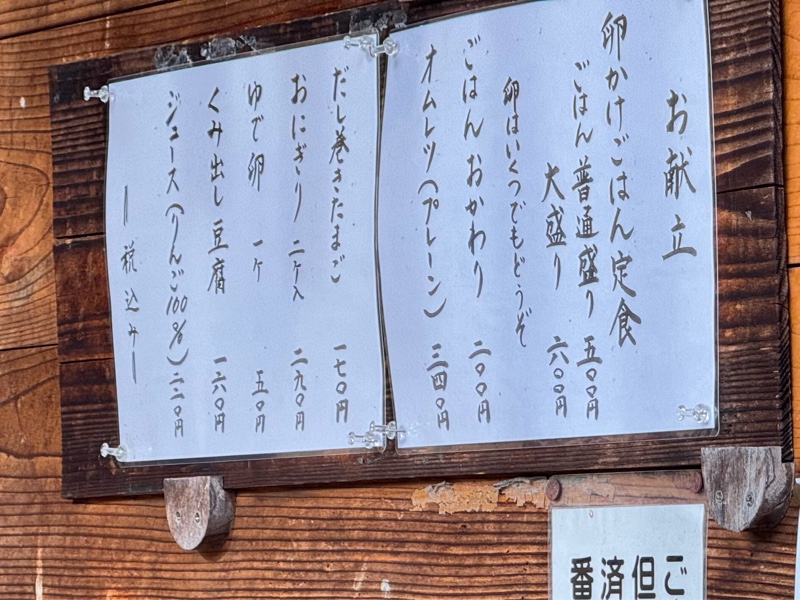 お献立
卵かけごはん定食
ごはん 普通盛り 五〇〇円
大盛り 六〇〇円
卵はいくつでもどうぞ
ごはん おかわり 二〇〇円
オムレツ(プレーン) 三四〇円
だし巻きたまご 一七〇円
おにぎり 二ケ入 二九〇円
ゆで卵 一ケ 五〇円
くみ出し豆腐 一六〇円
ジュース(りんご100%) 二二〇円
ー税込みー
ご
但
済
番